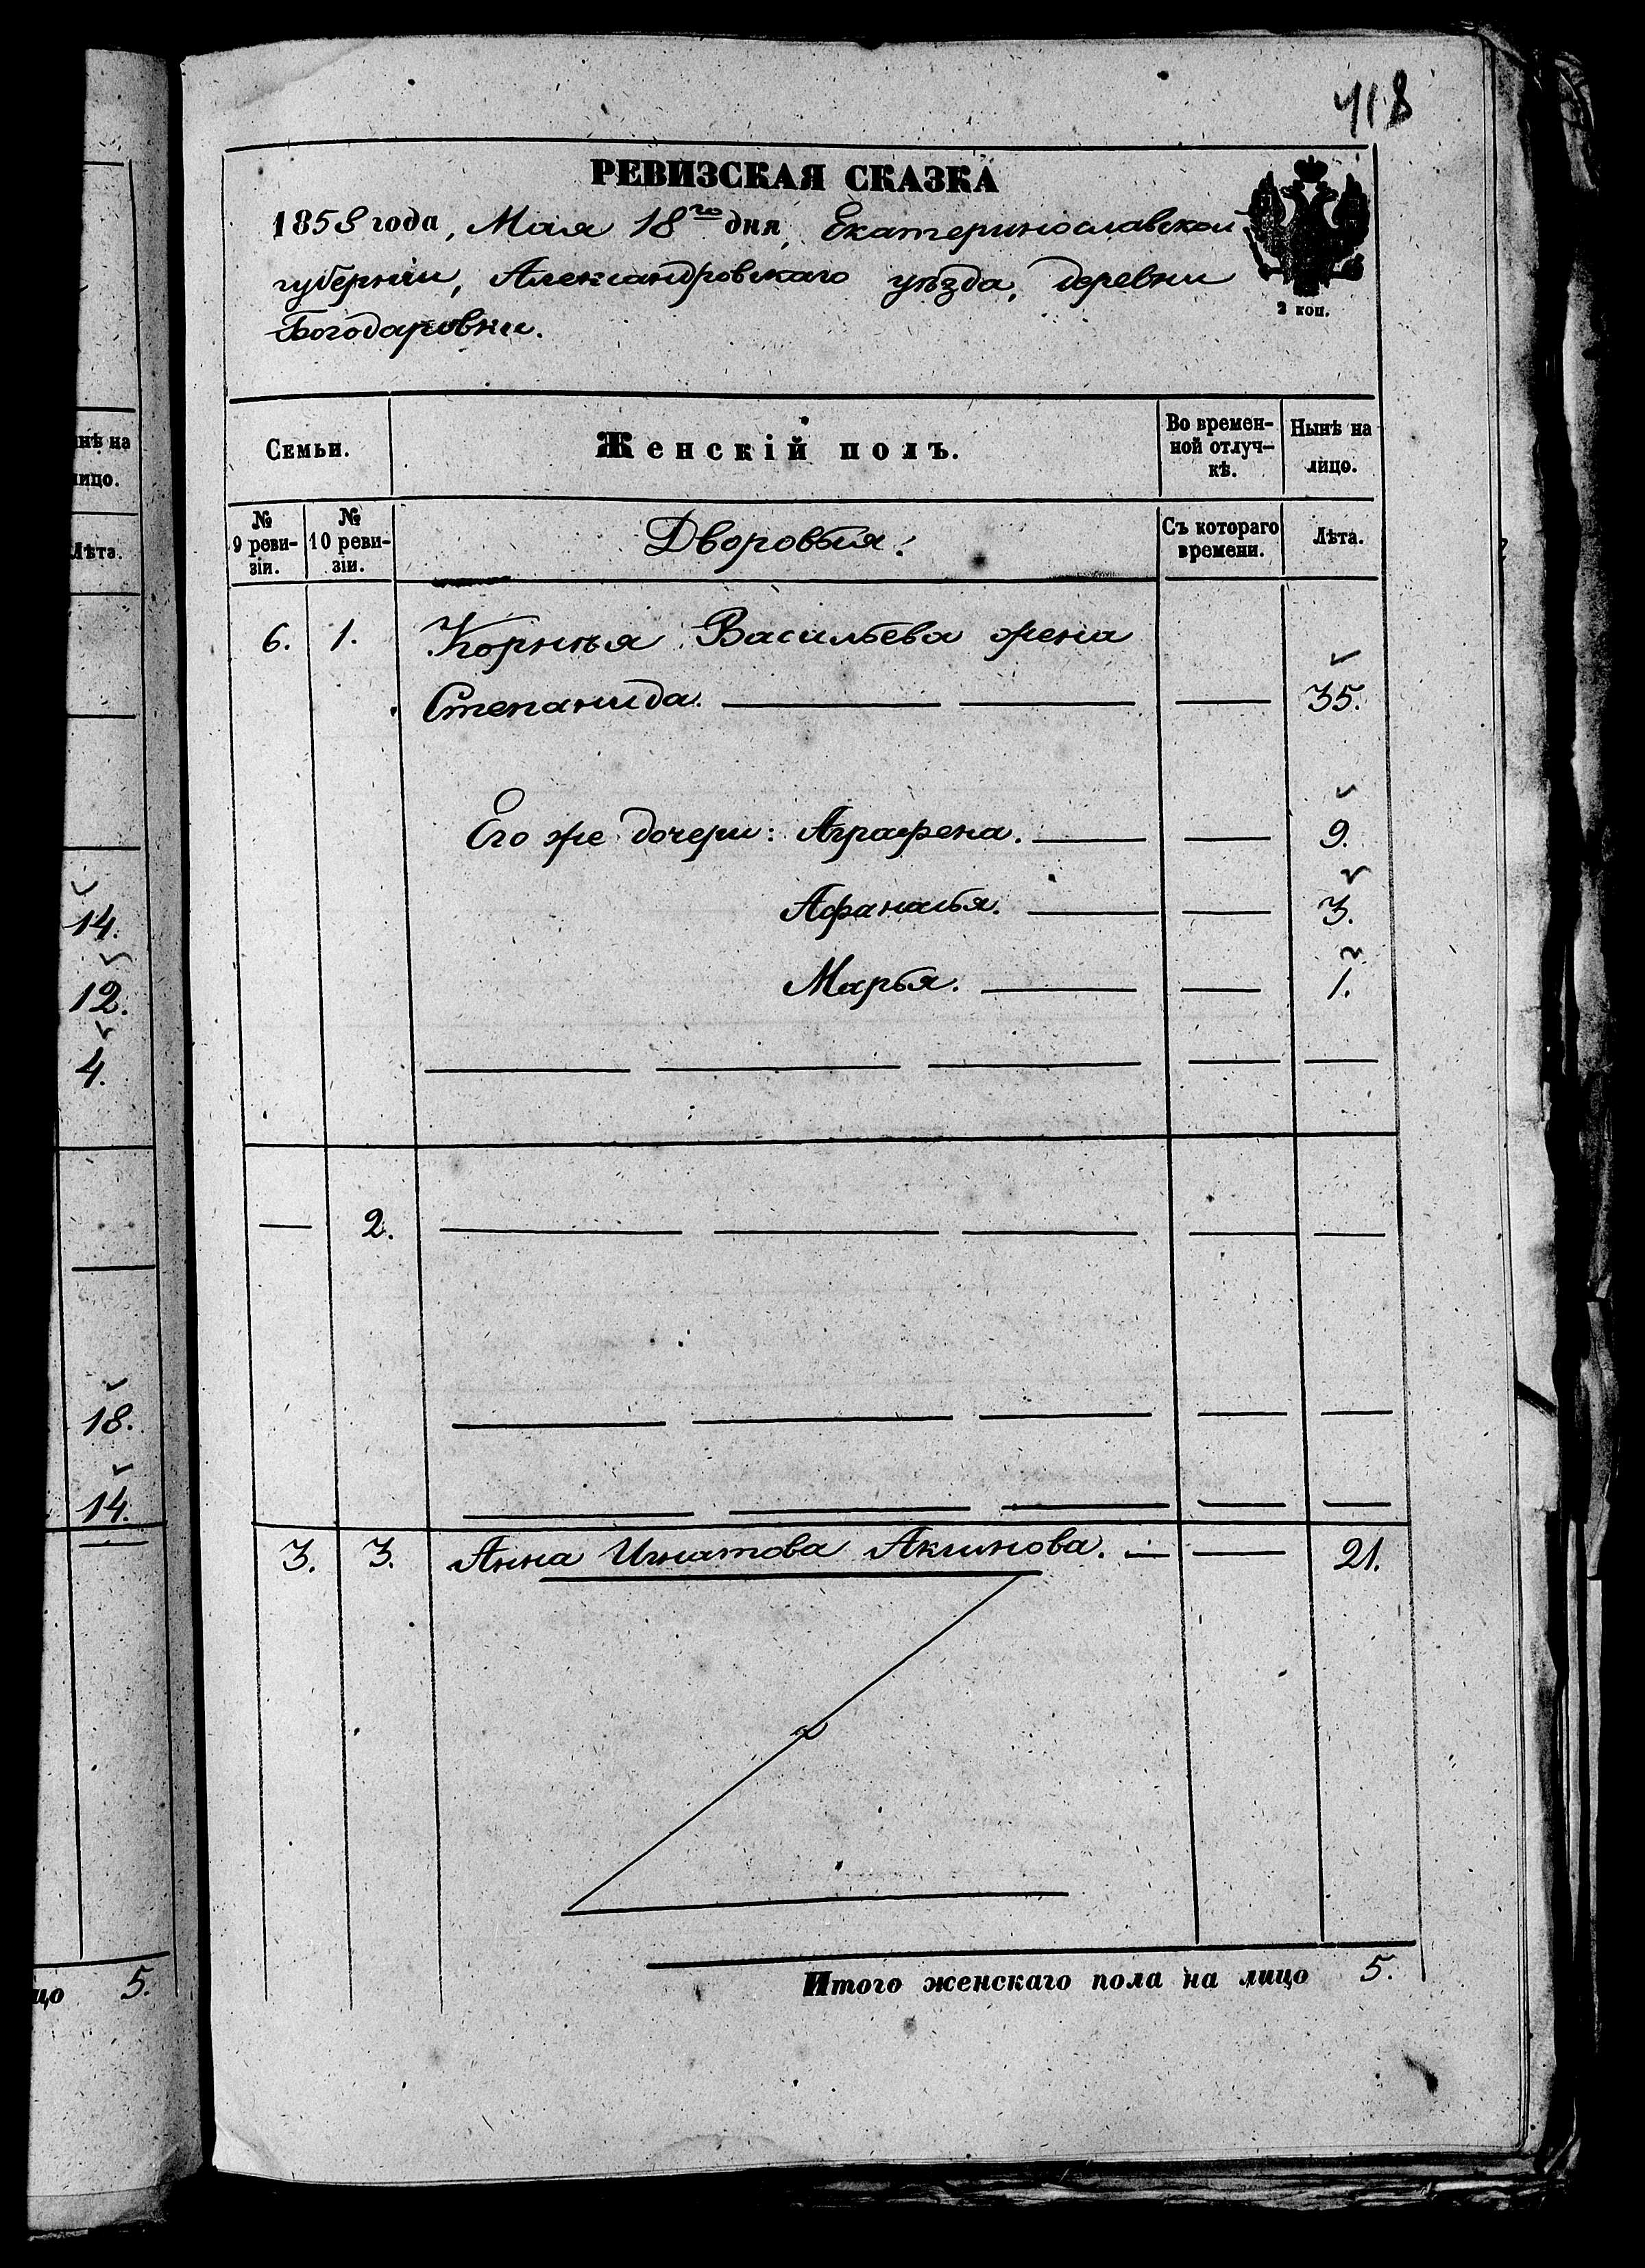 418
РЕВИЗСКАЯ СКАЗКА
1858 года, Мая 18го дня, Екатеринославской
губерніи, Александровскаго уѣзда, деревни
Богодаровки.
2 коп.
Семьи. Женскій полъ. Во времен-ной отлуч-кѣ. Нынѣ на лицо.
№ 9 реви-зіи. № 10 реви-зіи. Дворовыя. Съ котораго времени. Лѣта.
6. 1. Корнѣя Васильева жена
Степанида. 35.
Его же дочери: Аграфена. 9.
Афанасья. 3.
Марья. 1.
2.
3. 3. Анна Игнатова Акимова. 21.
Итого женскаго пола на лицо 5.
нѣ на
лицо.
Лѣта.
14.
12.
4.
18.
14.
цо 5.